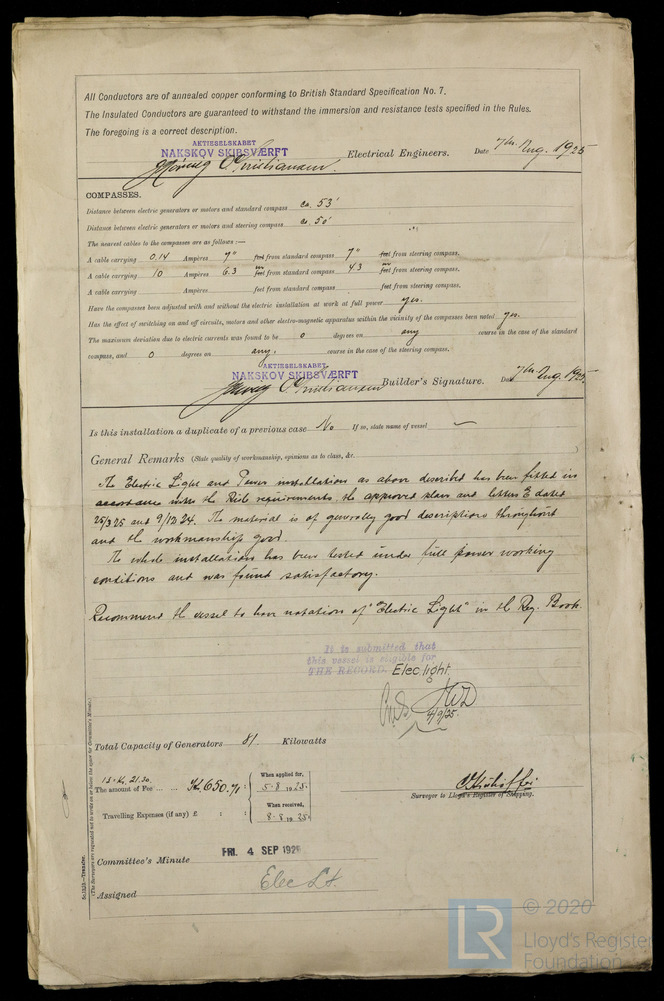 All Conductors are of annealed copper conforming to British Standard Specification No. 7.
The Insulated Conductors are guaranteed to withstand the immersion and resistance tests specified in the Rules.
The foregoing is a correct description.
AKTIESELSKABET
NAKSKOV SKIBSVÆRFT Electrical Engineers. Date 7th Aug. 1925
COMPASSES.
Distance between electric generators or motors and standard compass ca. 53'
Distance between electric generators or motors and steering compass ca. 50'
The nearest cables to the compasses are as follows :—
A cable carrying 0.14 Ampères 7" feet from standard compass 7" feet from steering compass.
A cable carrying 10 Ampères 6.3 m feet from standard compass 4.3 m feet from steering compass.
A cable carrying Ampères feet from standard compass feet from steering compass.
Have the compasses been adjusted with and without the electric installation at work at full power yes.
Has the effect of switching on and off circuits, motors and other electro-magnetic apparatus within the vicinity of the compasses been noted yes.
The maximum deviation due to electric currents was found to be 0 degrees on any course in the case of the standard
compass, and 0 degrees on any. course in the case of the steering compass.
AKTIESELSKABET
NAKSKOV SKIBSVÆRFT Builder's Signature. Date 7th Aug. 1925
Is this installation a duplicate of a previous case No If so, state name of vessel —
General Remarks (State quality of workmanship, opinions as to class, &c.
The Electric Light and Power installations as above described has been fitted in
accordance with the Rule requirements, the approved plan and letters E dated
25/3 25 and 9/12 24. The material is of generally good descriptions throughout
and the workmanship good.
The whole installations has been tested under full power working
conditions and was found satisfactory.
Recommend the vessel to have notation of "Electric Light" in the Reg. Book.
It is submitted that
this vessel is eligible for
THE RECORD. Elec. light.
4/9/25.
Total Capacity of Generators 81 Kilowatts
The amount of Fee Kr. 650. 71 : When applied for, 5.8 1925.
Travelling Expenses (if any) £ : : When received, 8.8 1925.
Surveyor to Lloyd's Register of Shipping.
Committee's Minute FRI. 4 SEP 1925
Assigned Elec Lt.
(The Surveyors are requested not to write on or below the space for Committee's Minute.)
© 2020
LR
Lloyd's Register
Foundation